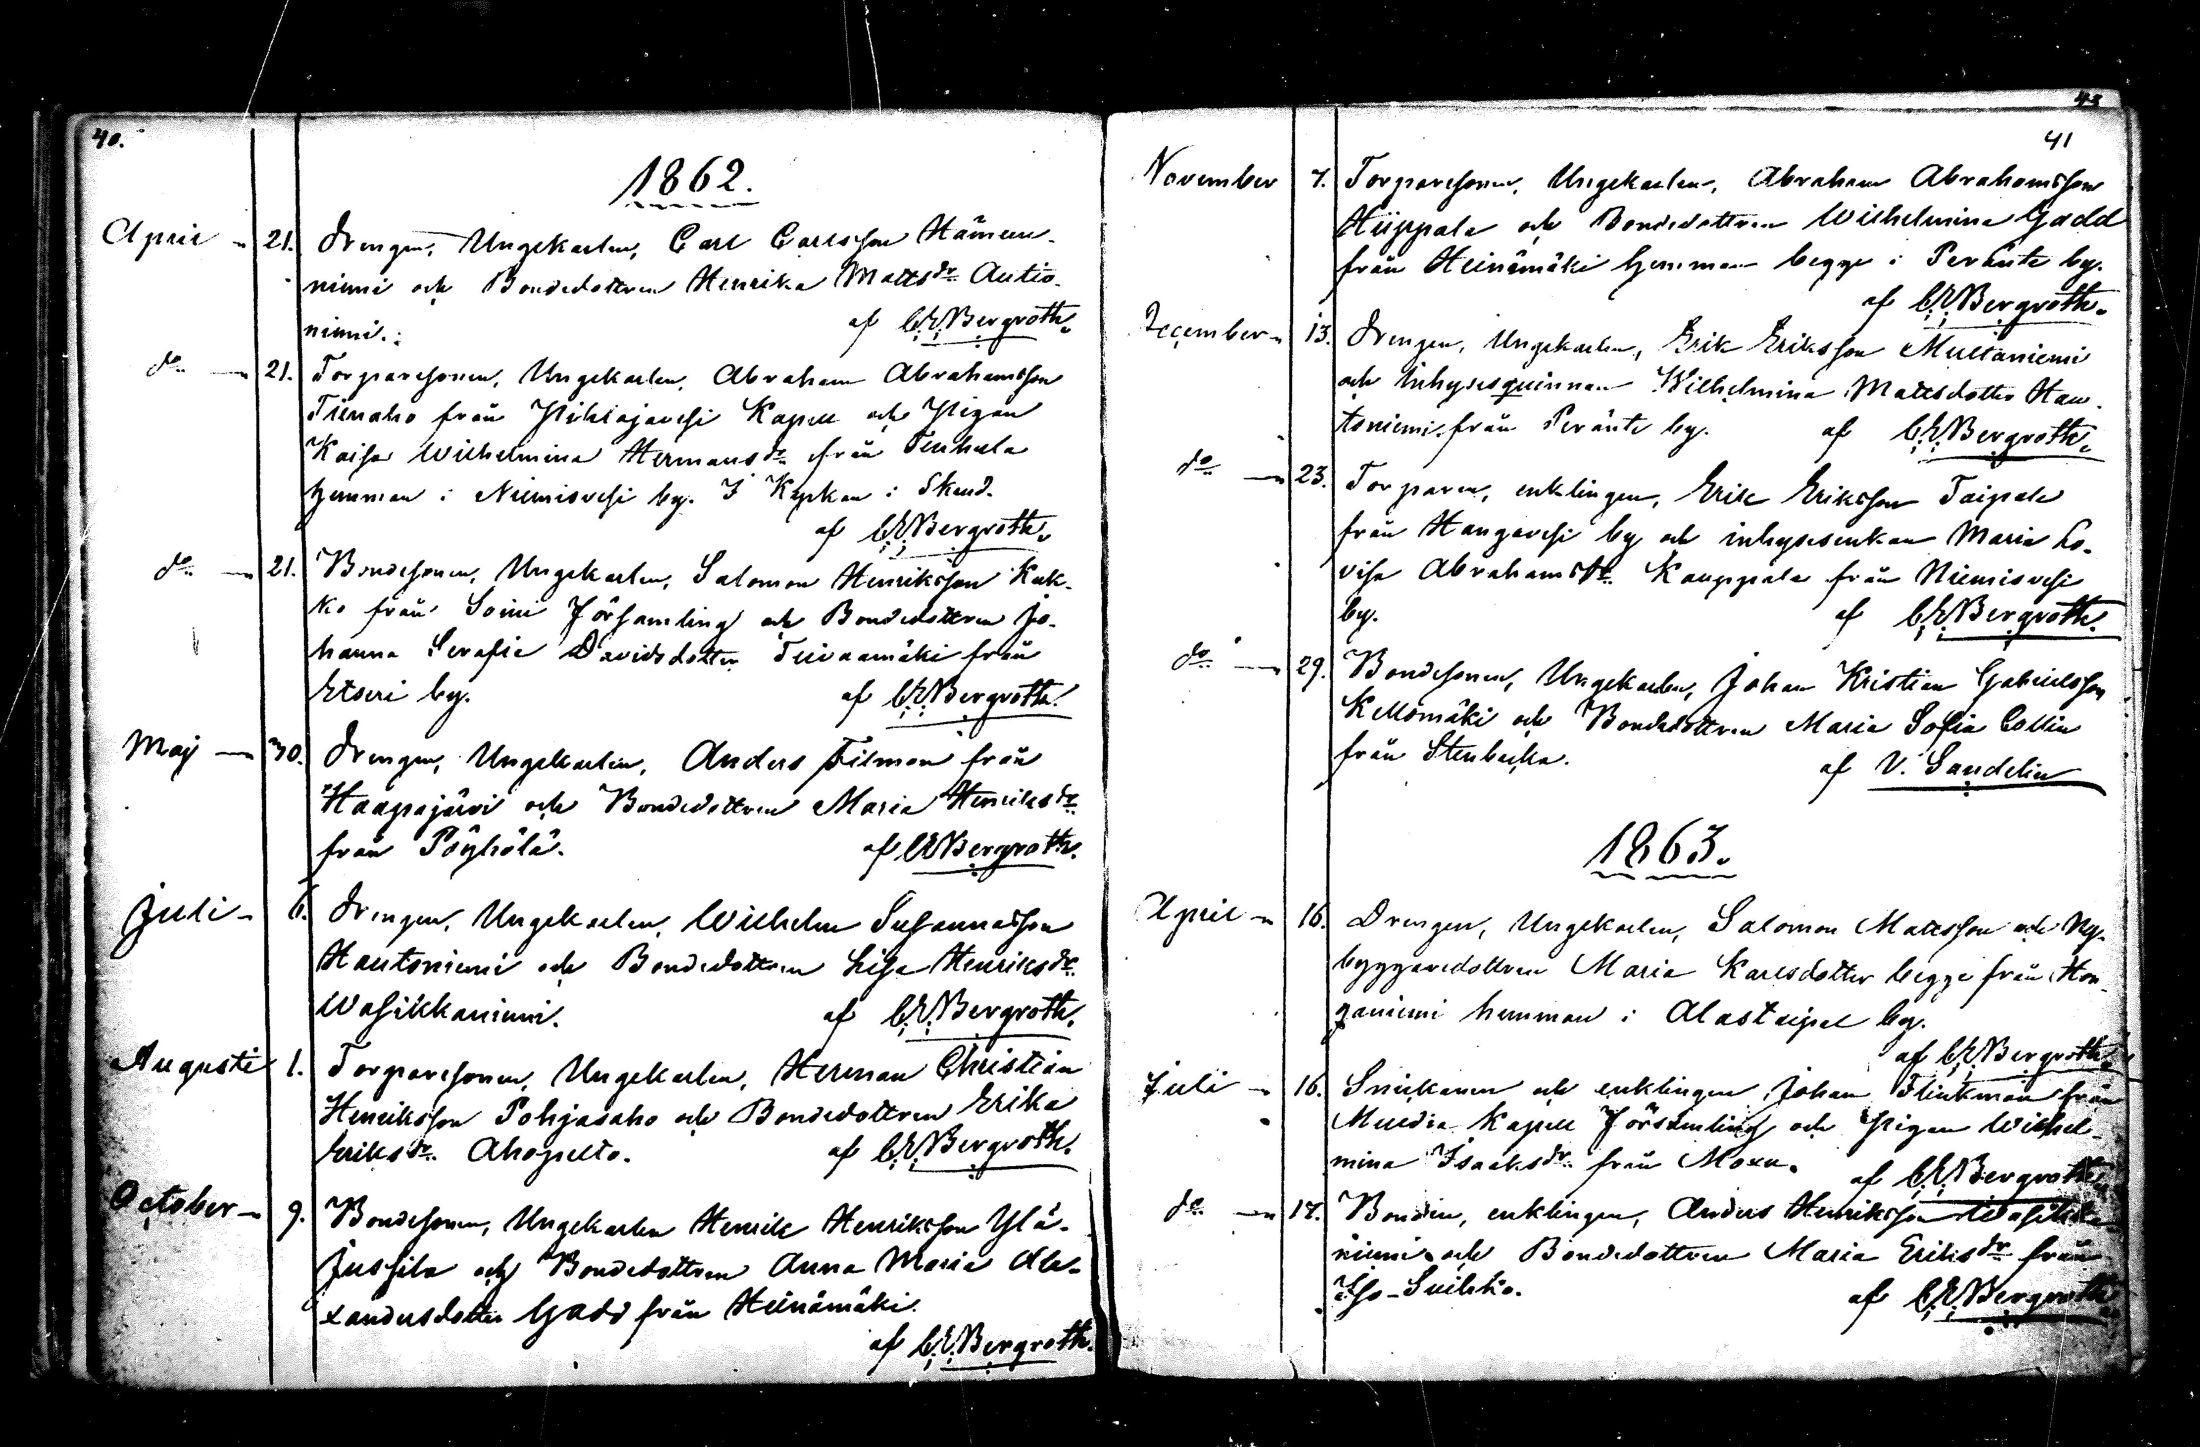 40.
1862.
April 21. Drengen, Ungekarlen, Carl Carlsson Hämeen-
niemi och Bondedottren Henrika Mattsdr Autio-
niemi. af C.E. Bergroth.
do 21. Torparesonen, Ungekarlen, Abraham Abrahamsson
från Pihlajavesi Kapell och Pigan
Kaisa Wilhelmina Hermansdr från Tenhula
hemman i Niemisvesi by.
af C.E. Bergroth.
do 21. Bondesonen, Ungekarlen, Salomon Henriksson Kuk-
ko från Soini Församling och Bondedottren Jo-
hanna Serafia Davidsdotter från
Etseri by. af C.E. Bergroth.
Maj 30. Drengen, Ungekarlen, Anders Filmon från
Haapajärvi och Bondedottren Maria Henriksdr
från Pöyhölä. af C.E. Bergroth.
Juli 6. Drengen, Ungekarlen, Wilhelm Susannasson
Hautoniemi och Bondedottren Lisa Henriksdr
Wasikkaniemi. af C.E. Bergroth.
Augusti 1. Torparesonen, Ungekarlen, Herman Christian
Henriksson Pohjasaho och Bondedottren Erika
Eriksdr Ahopelto. af C.E. Bergroth.
October 9. Bondesonen, Ungekarlen Henrik Henriksson Ylä-
Jussila och Bondedottren Anna Maria Ale-
xandersdotter Gadd från Heinämäki.
af C.E. Bergroth.
41
November 7. Torparesonen, Ungekarlen, Abraham Abrahamsson
Hiippala och Bondedottren Wilhelmina Gadd
från Heinämäki hemman begge i Peränte by.
af C.E. Bergroth.
December 13. Drengen, Ungekarlen, Erik Eriksson Multaniemi
och Inhysesquinnan Wilhelmina Mattsdotter Hau-
toniemi från Peränte by. af C.E. Bergroth.
do 23. Torparen, enklingen, Erik Eriksson Taipale
från Hangavesi by och inhysesenkan Maria Lo-
visa Abrahamsdr Kauppala från Niemisvesi
by. af C.E. Bergroth.
do 29. Bondesonen, Ungekarlen, Johan Kristian Gabrielsson
Kellömäki och Bondedottren Maria Sofia Collin
från Stenbacka. af V. Sandelin
1863.
April 16. Drengen, Ungekarlen, Salomon Mattsson och Ny-
byggaredottren Maria Karlsdotter begge från Hon-
ganiemi hemman i Alastaipal by.
af C.E. Bergroth.
Juli 16. Snickaren och enklingen Johan Flinkman från
Multia Kapell Församling och Pigan Wilhel-
mina Isaaksdr från Moxu. af C.E. Bergroth.
do 17. Bonden, enklingen, Anders Henriksson Wasikka-
niemi och Bondedottren Maria Eriksdr från
Iso-Suikko. af C.E. Bergroth.